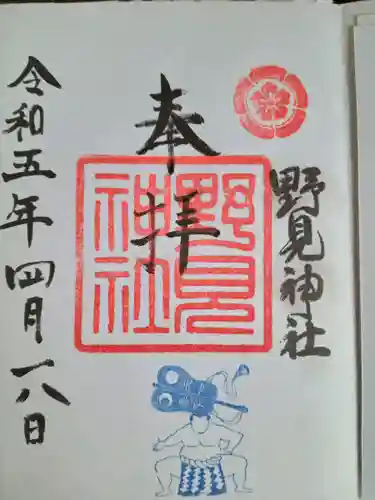 奉拝
野見神社
野見
神社
令和五年四月一八日